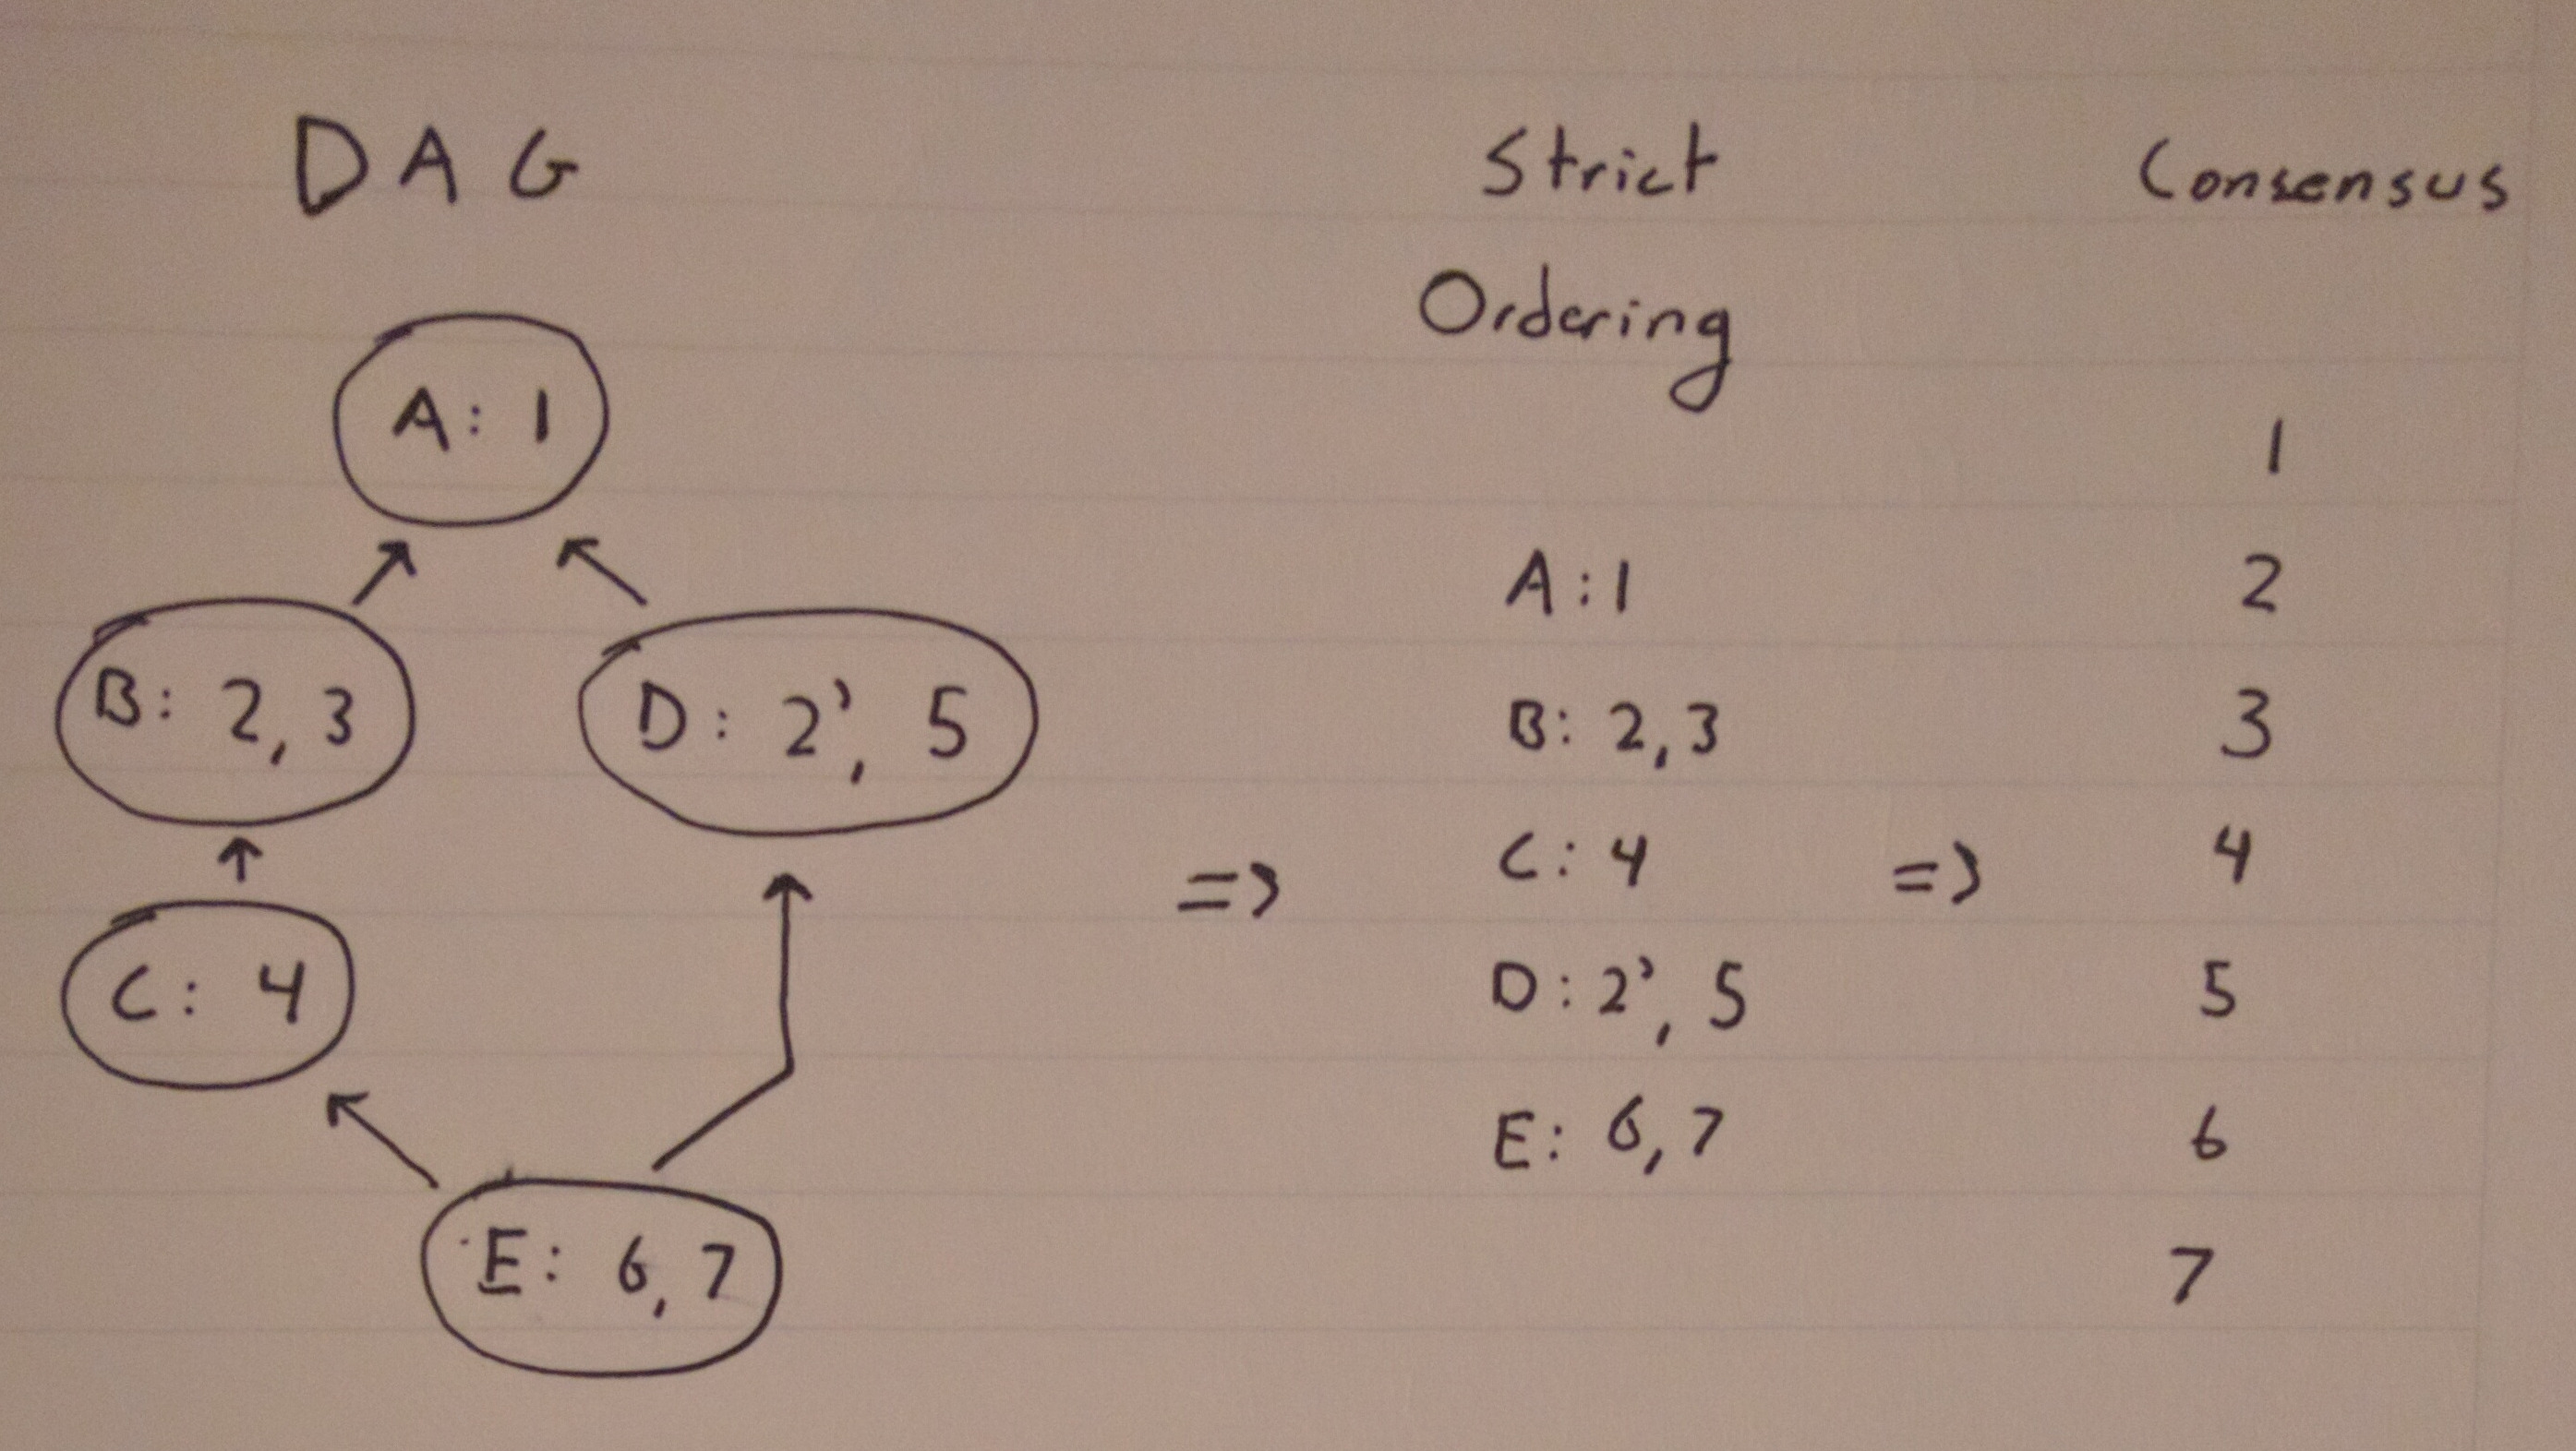 DAG
A: 1
B: 2, 3
D: 2', 5
C: 4
E: 6, 7
=>
Strict
Ordering
A: 1
B: 2, 3
C: 4
D: 2', 5
E: 6, 7
=>
Consensus
1
2
3
4
5
6
7